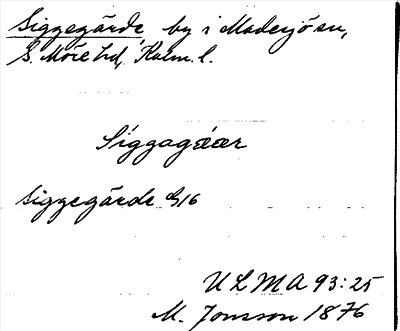 Siggegärde by i Madesjö sn,
S. Möre hd, Kalm. l.
Siggagæær
Siggegärde G16
ULMA 93:25
M. Jonsson 1876